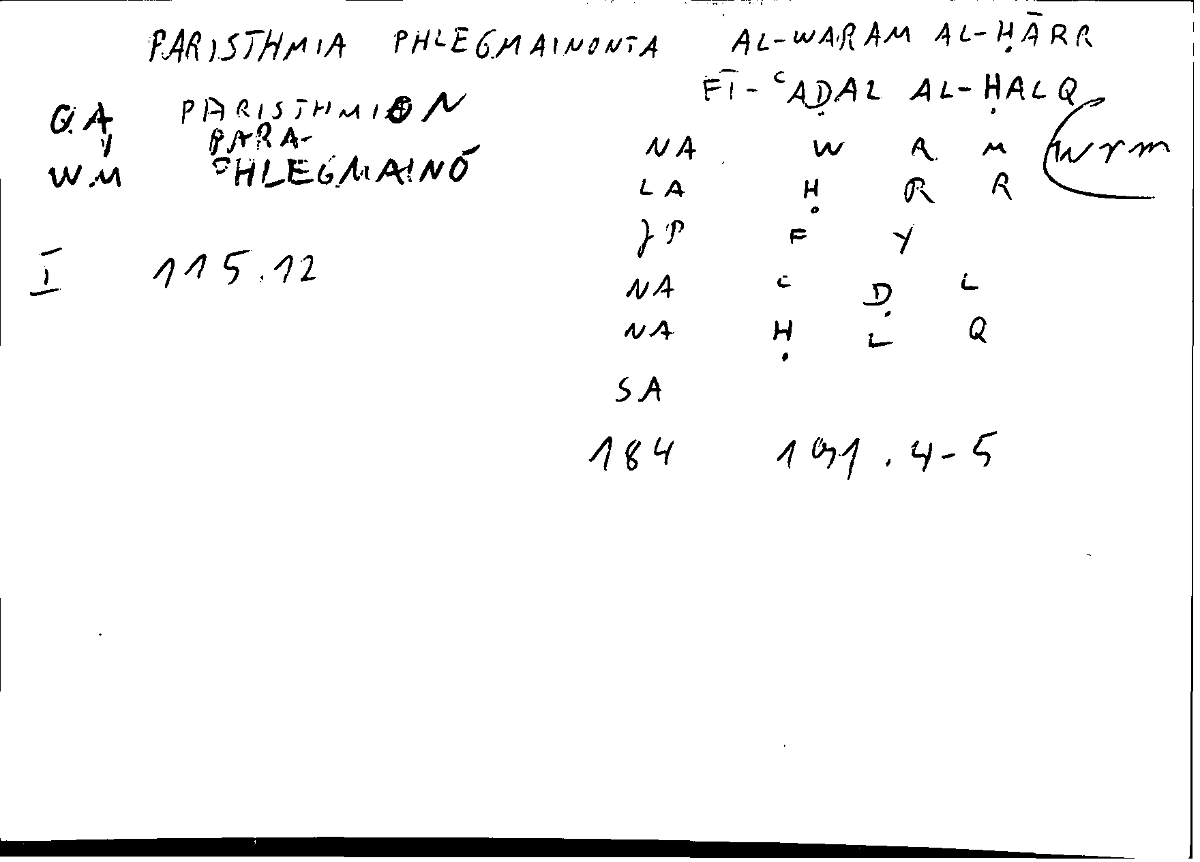 PARISTHMIA PHLEGMAINONTA AL-WARAM AL-ḤĀRR
FĪ-ʿAḌAL AL-ḤALQ
G.A PARISTHMION
Y PARA-
W.M PHLEGMAINŌ
I 115.12
NA W R M wrm
LA Ḥ R R
JP F Y
NA ʿ Ḍ L
NA Ḥ L Q
SA
184 191.4-5